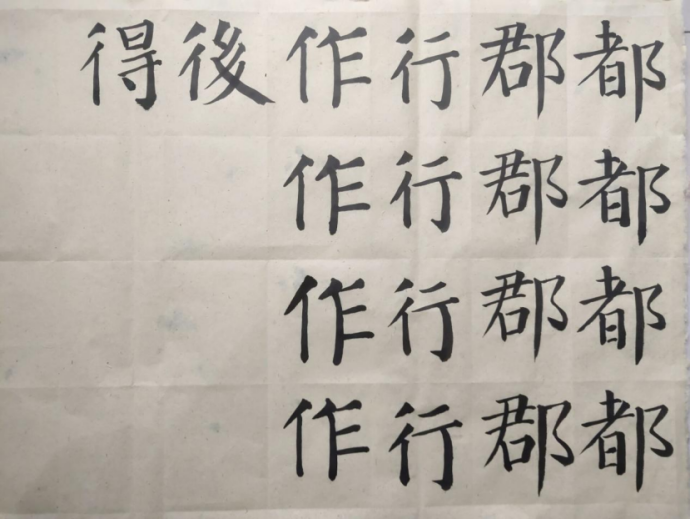 都都都都
郡郡郡郡
行行行行
作作作作
後
得